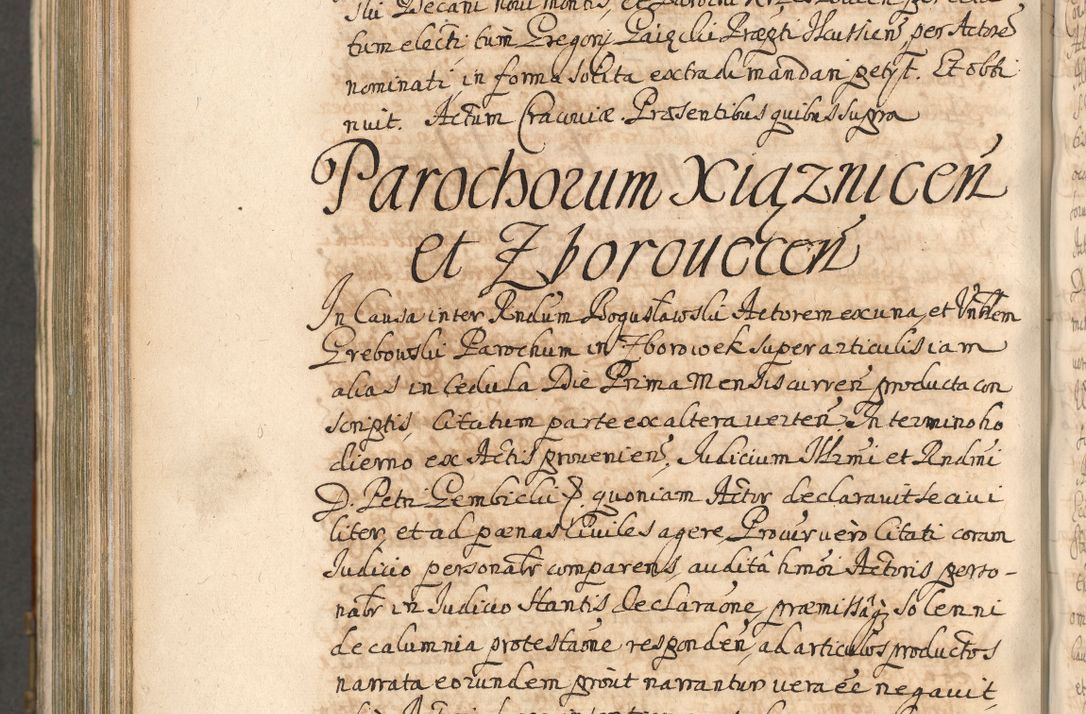 ski Decani novi montis, et Parochi
tum electi tum Gregorij Præpti per Actorē
nominati, in forma solita extradi mandari petijt. Et obti
nuit. Actum Cracoviæ. Præsentibus quibus supra
Parochorum Xiąznicen̄
et Zborovecen̄
In Causa inter Rndum Bogusławski Actorem ex una, et Vnblem
Grebowski Parochum in Zborowek super articulis iam
alias in Cedula Die Prima Mensis curren̄ producta con
scriptis, Citatum parte ex altera verten̄. In termino ho
dierno ex Actis provenien̄, Judicium Illrmi et Rndmi
D. Petri Gembicki P. quoniam Actor declaravit se civi
liter, et ad pænas Civiles agere, Procur vero Citati coram
Judicio personalr comparens, audita hmōi Actoris perso-
nalr in Judicio stantis declaraōne, præmissaqz solenni
de calumnia protestaōne responden̄, ad articulos productos
narrata eorundem prout narrantur vera eē negavit